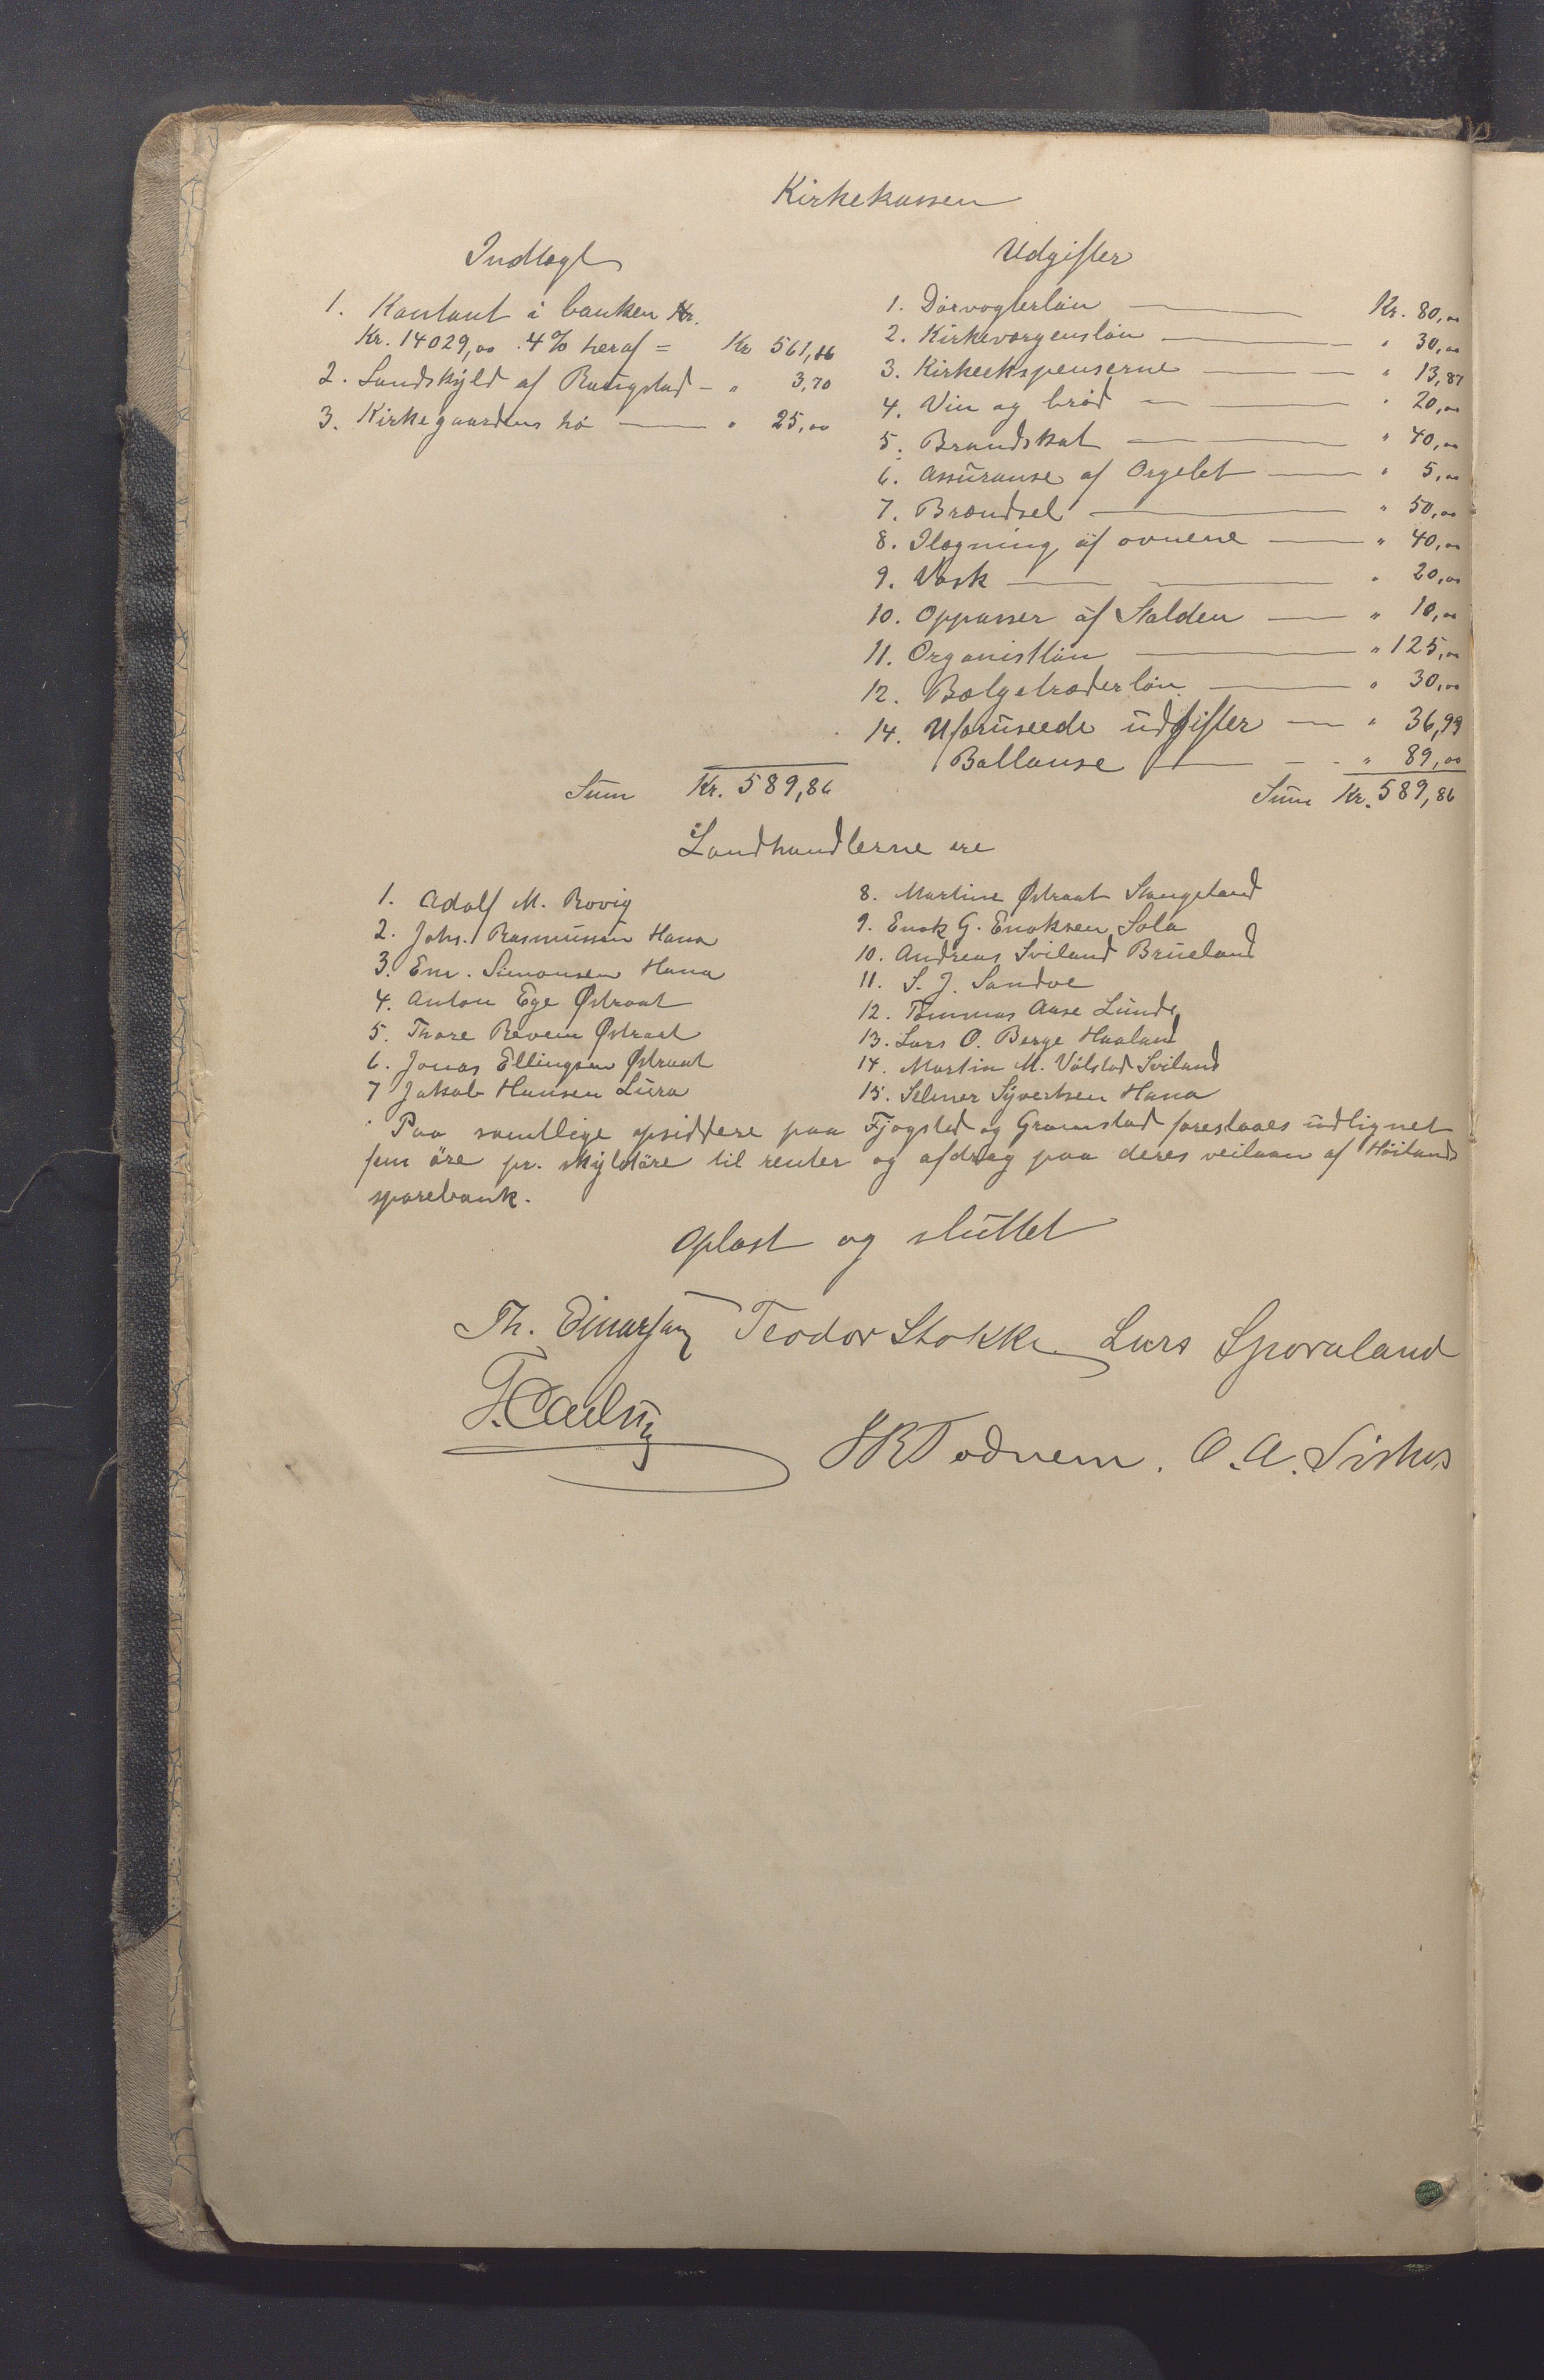 Kirkekassen
Indtægt
1. Kontant i banken Kr.
Kr. 14029,00 4% heraf = Kr 561,16
2. Landskyld af Rungstad - " 3,70
3. Kirkegaardens hø — " 25,00
Sum Kr. 589,86
Udgifter
1. Dørvogterløn — Kr. 80,00
2. Kirkeværgensløn — " 30,00
3. Kirkeekspenserne — " 13,87
4. Vin og brød — " 20,00
5. Brandskat — " 40,00
6. Assuranse af Orgelet — " 5,00
7. Brændsel — " 50,00
8. Ilægning af ovnene — " 40,00
9. Vask — " 20,00
10. Oppasser af Stalden — " 10,00
11. Organistløn — " 125,00
12. Bælgetræderløn — " 30,00
14. Uforuseede udgifter — " 36,99
Ballanse — " 89,00
Sum Kr. 589,86
Landhandlerne ere
1. Adolf M. Rovig
2. Johs. Rasmussen Hana
3. Em. Simonsen Hana
4. Anton Ege Østraat
5. Thore Revem Østraat
6. Jonas Ellingsen Østraat
7 Jakob Hansen Lura
8. Martine Østraat Stangeland
9. Enok G. Enoksen Sola
10. Andreas Sviland Brueland
11. S. J. Sandve
12. Tommas Aase Lunde
13. Lars O. Berge Haaland
14. Martin M. Vølstad Sviland
15. Selmer Syvertsen Hana
Paa samtlige opsiddere paa Fjogstad og Gramstad foreslaaes udlignet
fem öre pr. skyldöre til renter og afdrag paa deres veilaan af Höilands
sparebank.
Oplæst og sluttet
Th. Einarsen Teodor Stokke Lars Sporaland
Todnem. O. A.